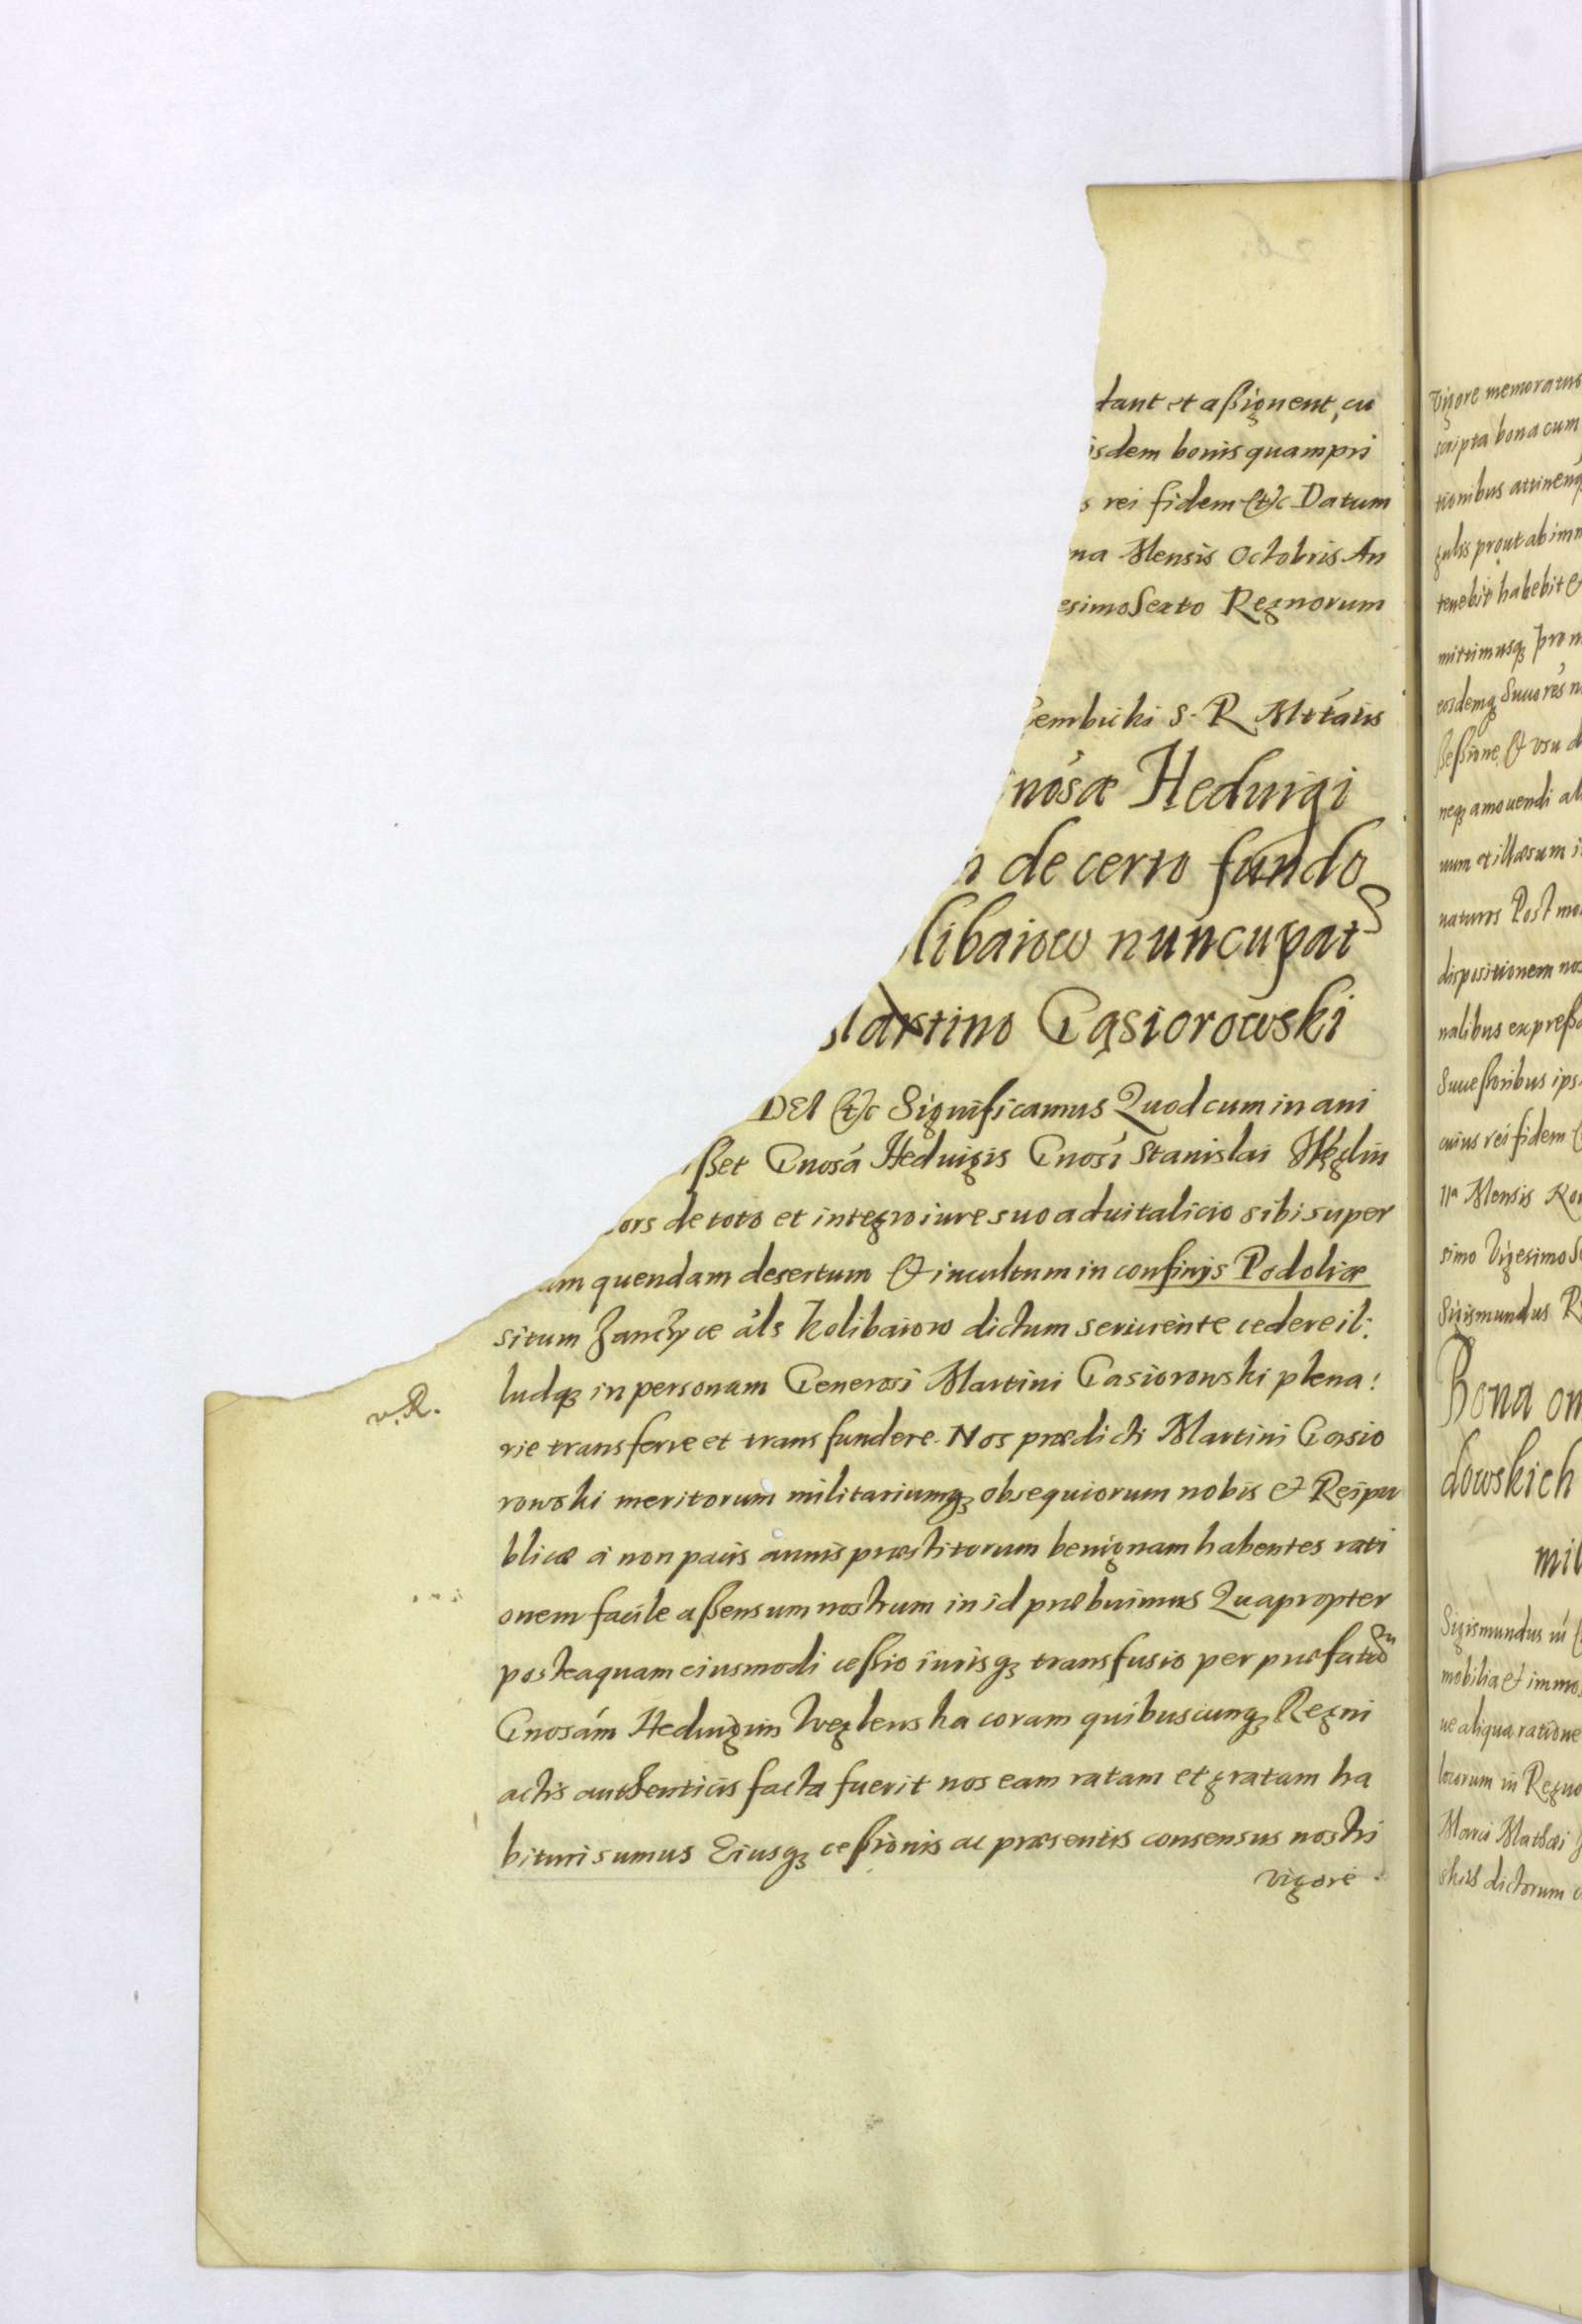 tant et aßignent, cu
isdem bonis quam pri
s rei fidem &c Datum
na Mensis Octobris An
esimo Sexto Regnorum
embicki S. R. Mttáis
nósæ Heduigi
n de certo fundo
libaiow nuncupat
artino Gąsiorowski
DEI &c Significamus Quod cum in ani
ßet Gnosá Heduigis Gnosí Stanislai
ors de toto et integro iure suo aduitalicio sibi super
um quendam desertum & incultum in confinijs Podoliæ
situm Janczyce áls Kolibaiow dictum seruiente cedere il:
ludq3 in personam Generosi Martini Gasiorowski plena:
rie transferre et transfundere. Nos prædicti Martini Gąsio
rowski meritorum militariumq3 obsequiorum nobis & Reipu
blicæ à non pacis annis præstitorum benignam habentes rati
onem facile aßensum nostrum in id præbuimus Quapropter
v. R.
posteaquam eiusmodi ceßio iurisq3 transfusio per præfatã
Gnosám Heduigim Węglenska coram quibuscunq3 Regni
actis authenticis facta fuerit nos eam ratam et gratam ha
bituri sumus Eiusq3 ceßionis ac præsentis consensus nostri
vigore
Vigore memoratus
scripta bona cum
tionibus attinen
gulis prout ab
tenebit habebit &
mittimusq3 pro
eosdemq3 Succrés
ßeßione & usu
neq3 amouendi
uum et illæsum
naturis Post
dispositionem
nalibus expreß
Succeßoribus
cuius rei fidem
IIa Mensis
simo Vigesimo
Sigismundus
Bona
dowskich
mil
Sigismundus
mobilia & immo
ue aliqua ratione
locorum in Regno
Marci Mathæi
dictorum